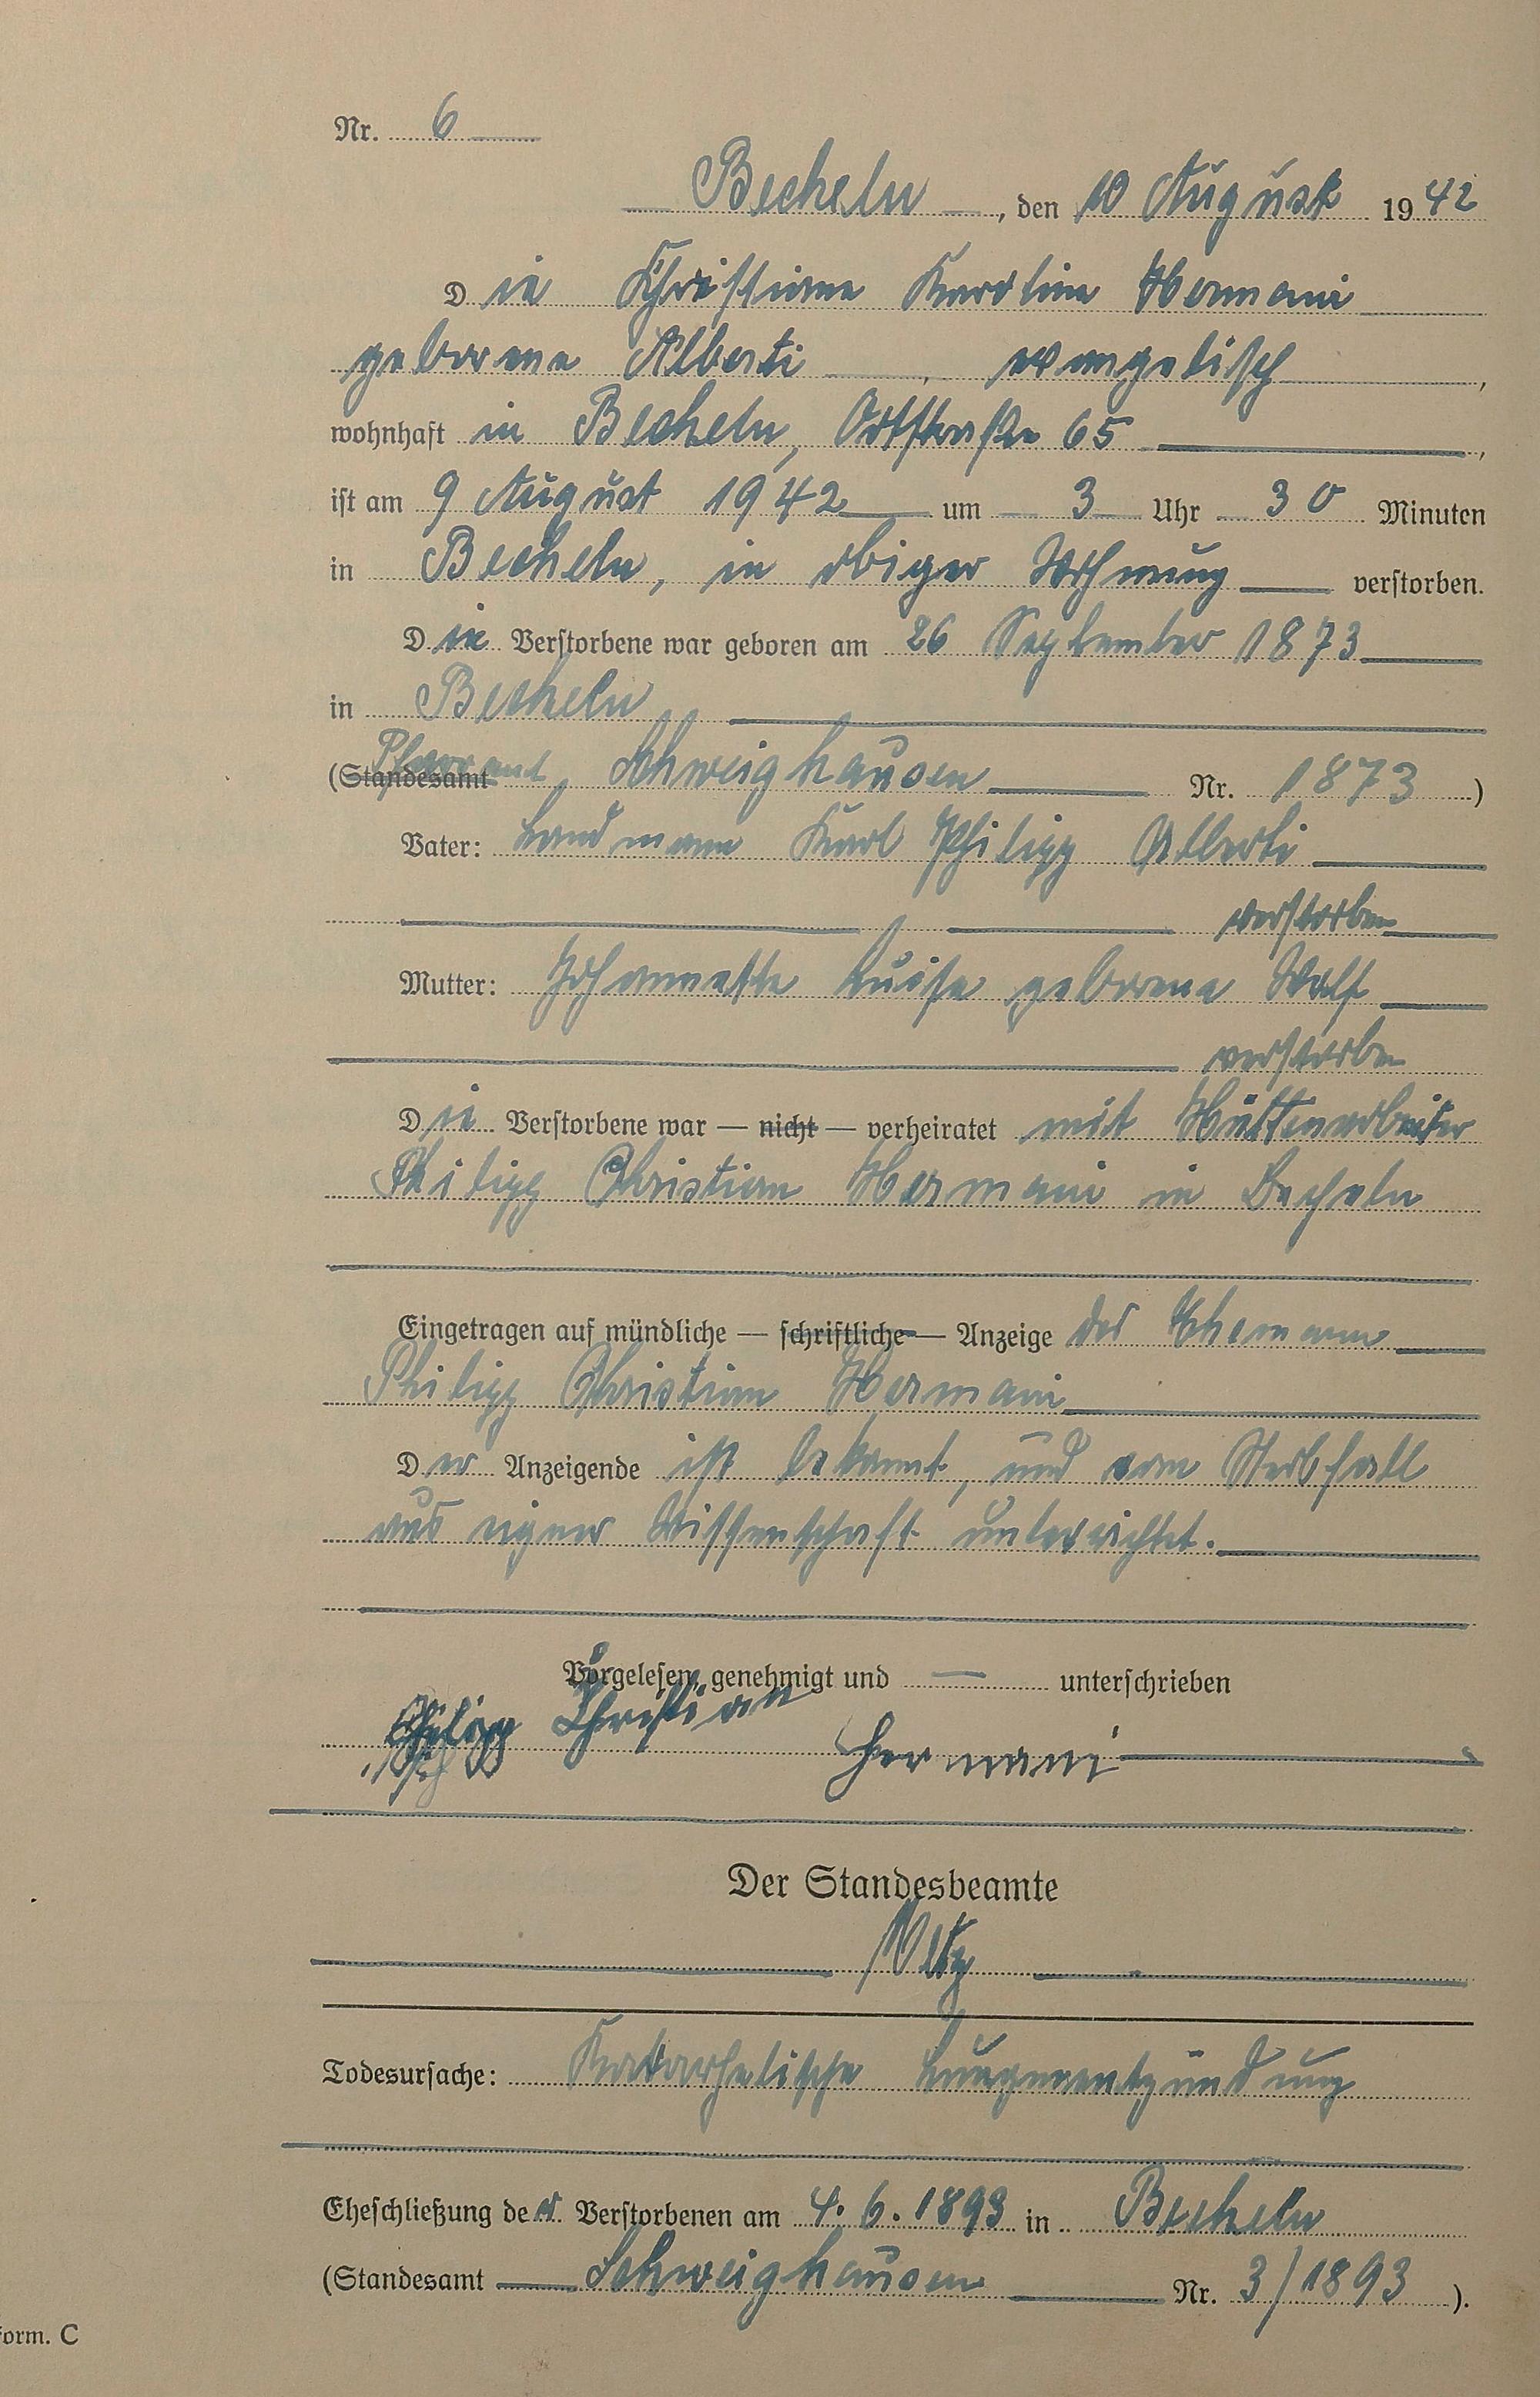 Nr. 6
Becheln, den 10 August 1942
Die Christiane Karoline Hermani
geborene Alberti, evangelisch,
wohnhaft in Becheln, Ortstraße 65,
ist am 9 August 1942 um 3 Uhr 30 Minuten
in Becheln, in obiger Wohnung verstorben.
Die Verstorbene war geboren am 26 September 1873
in Becheln
(Standesamt Pfarramt, Schweighausen Nr. 1873)
Vater: Landmann Karl Philipp Alberti
verstorben
Mutter: Johannette Luise geborene Wolf
verstorben
Die Verstorbene war — nicht — verheiratet mit Hüttenarbeiter
Philipp Christian Hermani in Becheln
Eingetragen auf mündliche — schriftliche — Anzeige des Ehemann
Philipp Christian Hermani
Der Anzeigende ist bekannt, und vom Sterbfall
aus eigner Wissenschaft unterrichtet.
Vorgelesen, genehmigt und — unterschrieben
Philipp Christian
Hermani
Der Standesbeamte
Todesursache: Katarhelische Lungenentzündung
Eheschließung der Verstorbenen am 4. 6. 1893 in Becheln
(Standesamt Schweighausen Nr. 3/1893).
Form. C